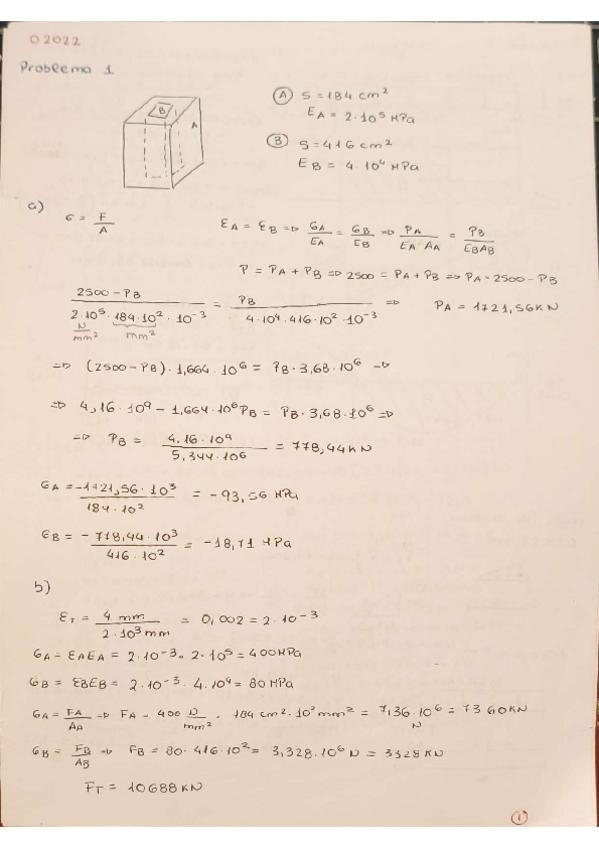 O 2022
Problema 1
B
A
Ⓐ S = 184 cm²
E_A = 2·10⁵ MPa
Ⓑ S = 416 cm²
E_B = 4·10⁴ MPa
a)
σ = F/A
ε_A = ε_B => σ_A/E_A = σ_B/E_B => P_A/(E_A·A_A) = P_B/(E_B A_B)
P = P_A + P_B => 2500 = P_A + P_B => P_A = 2500 - P_B
(2500 - P_B)/(2·10⁵·184·10²·10⁻³) = P_B/(4·10⁴·416·10²·10⁻³) => P_A = 1721,56 KN
N/mm² mm²
=> (2500 - P_B)·1,664·10⁶ = P_B·3,68·10⁶ =>
=> 4,16·10⁹ - 1,664·10⁶ P_B = P_B·3,68·10⁶ =>
=> P_B = 4,16·10⁹/5,344·10⁶ = 778,44 KN
σ_A = -1721,56·10³/184·10² = -93,56 MPa
σ_B = -778,44·10³/416·10² = -18,71 MPa
b)
ε_T = 4 mm/2·10³ mm = 0,002 = 2·10⁻³
σ_A = ε_A E_A = 2·10⁻³·2·10⁵ = 400 MPa
σ_B = ε_B E_B = 2·10⁻³·4·10⁴ = 80 MPa
σ_A = F_A/A_A => F_A = 400 N/mm²·184 cm²·10² mm² = 7,36·10⁶ N = 7360 KN
σ_B = F_B/A_B => F_B = 80·416·10² = 3,328·10⁶ N = 3328 KN
F_T = 10688 KN
①